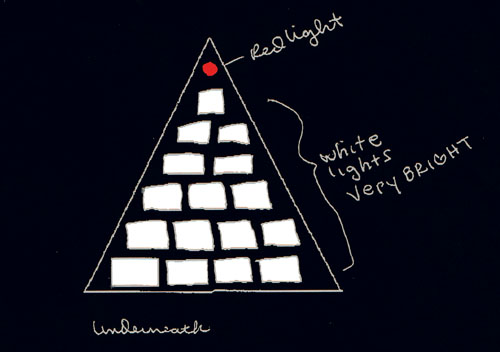 Red light
white
lights
VERY BRIGHT
Underneath